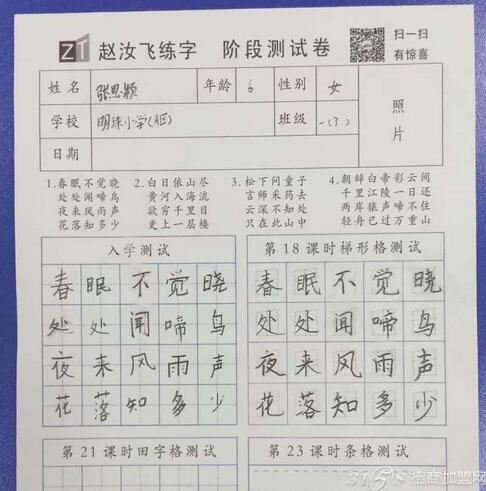 ZT 赵汝飞练字 阶段测试卷 扫一扫
有惊喜
姓名 张思颖 年龄 6 性别 女
学校 明珠小学 班级 一(3) 照片
日期
1.春眠不觉晓 2.白日依山尽 3.松下问童子 4.朝辞白帝彩云间
处处闻啼鸟 黄河入海流 言师采药去 千里江陵一日还
夜来风雨声 欲穷千里目 云深不知处 两岸猿声啼不住
花落知多少 更上一层楼 只在此山中 轻舟已过万重山
入学测试 第18课时梯形格测试
春眠不觉晓 春眠不觉晓
处处闻啼鸟 处处闻啼鸟
夜来风雨声 夜来风雨声
花落知多少 花落知多少
第21课时田字格测试 第23课时条格测试
3158招商加盟网